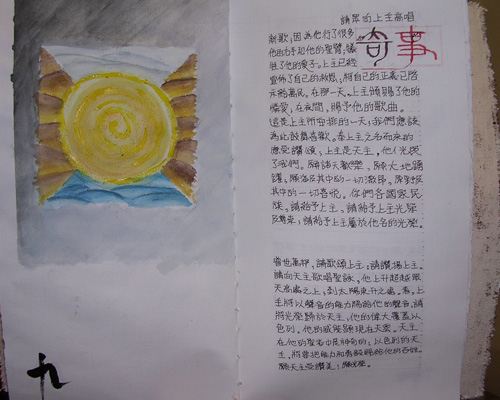 請眾向上主高唱
新歌;因為他行了很多
奇事
他的右手和他的聖臂,
得了他的愛子。上主已經
宣佈了自己的救恩,將自己的正義已啓
示給萬民。在那一天。上主傾賜了他的
憐愛。在夜間,賜予他的歌曲。
這是上主所安排的一天;我們應該
為此鼓舞喜歡。奉上主之名而來的
應受讚頌;上主是天主,他光照
了我們。願諸天歡樂,願大地踴
躍,願海及其中的一切激昂,原野及
其中的一切喜悅。你們各國家民
族,請給予上主,請給予上主光榮
及尊崇;請給予上主屬於他名的光榮。
普世萬邦,請歌頌上主;請讚揚上主。
請向天主歌唱聖詠。他上升超越眾
天高處之上,到太陽東升之處。看,上
主將以聲音的能力賜給他的聲音,請
將光榮歸於天主,他的偉大覆蓋以
色列。他的威能顯現在天雲。天主
在他的聖者中是神奇的;以色列的天
主,將要把能力和勇毅賜給他的百姓。
願天主受讚美;願光榮。
九